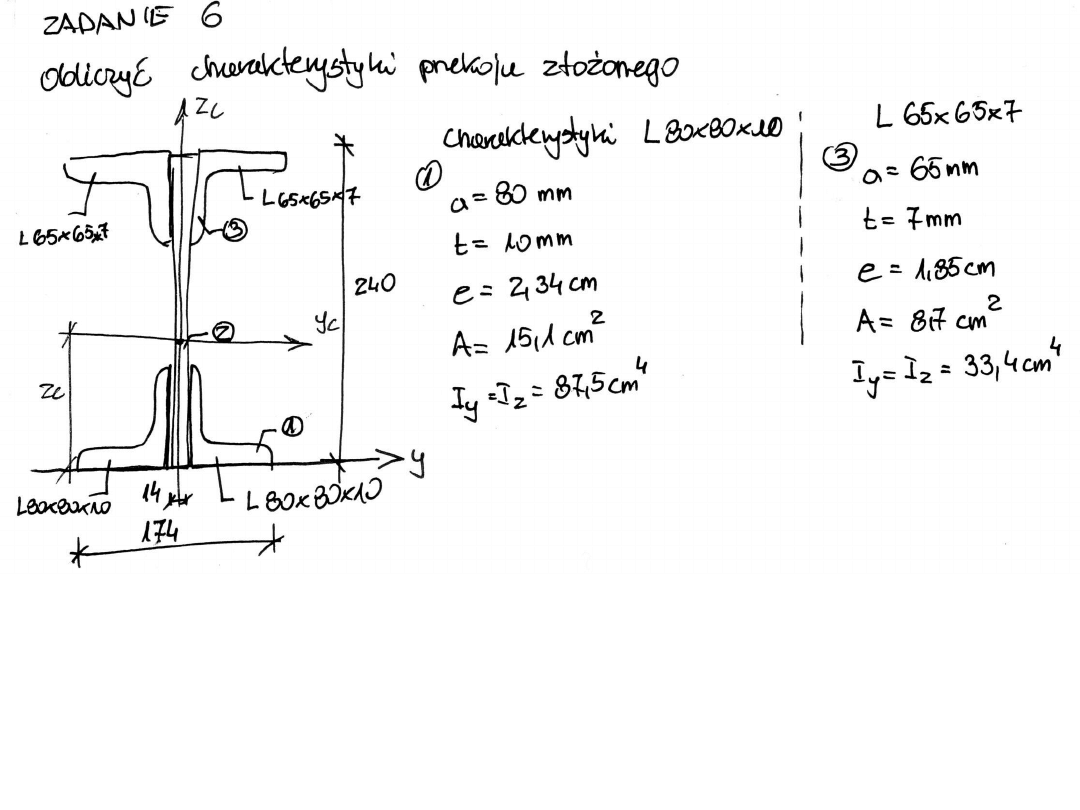 ZADANIE 6
Obliczyć charakterystyki przekoju złożonego
zc
L 65x65x7
L65x65x7
③
240
②
yc
zc
①
y
L80x80x10
14
L 80x80x10
174
charakterystyki L80x80x10
①
a= 80 mm
t= 10mm
e= 2,34 cm
A= 15,1 cm²
Iy =Iz= 87,5cm⁴
L 65x65x7
③
a= 65mm
t= 7mm
e= 1,85cm
A= 8,7 cm²
Iy= Iz= 33,4cm⁴